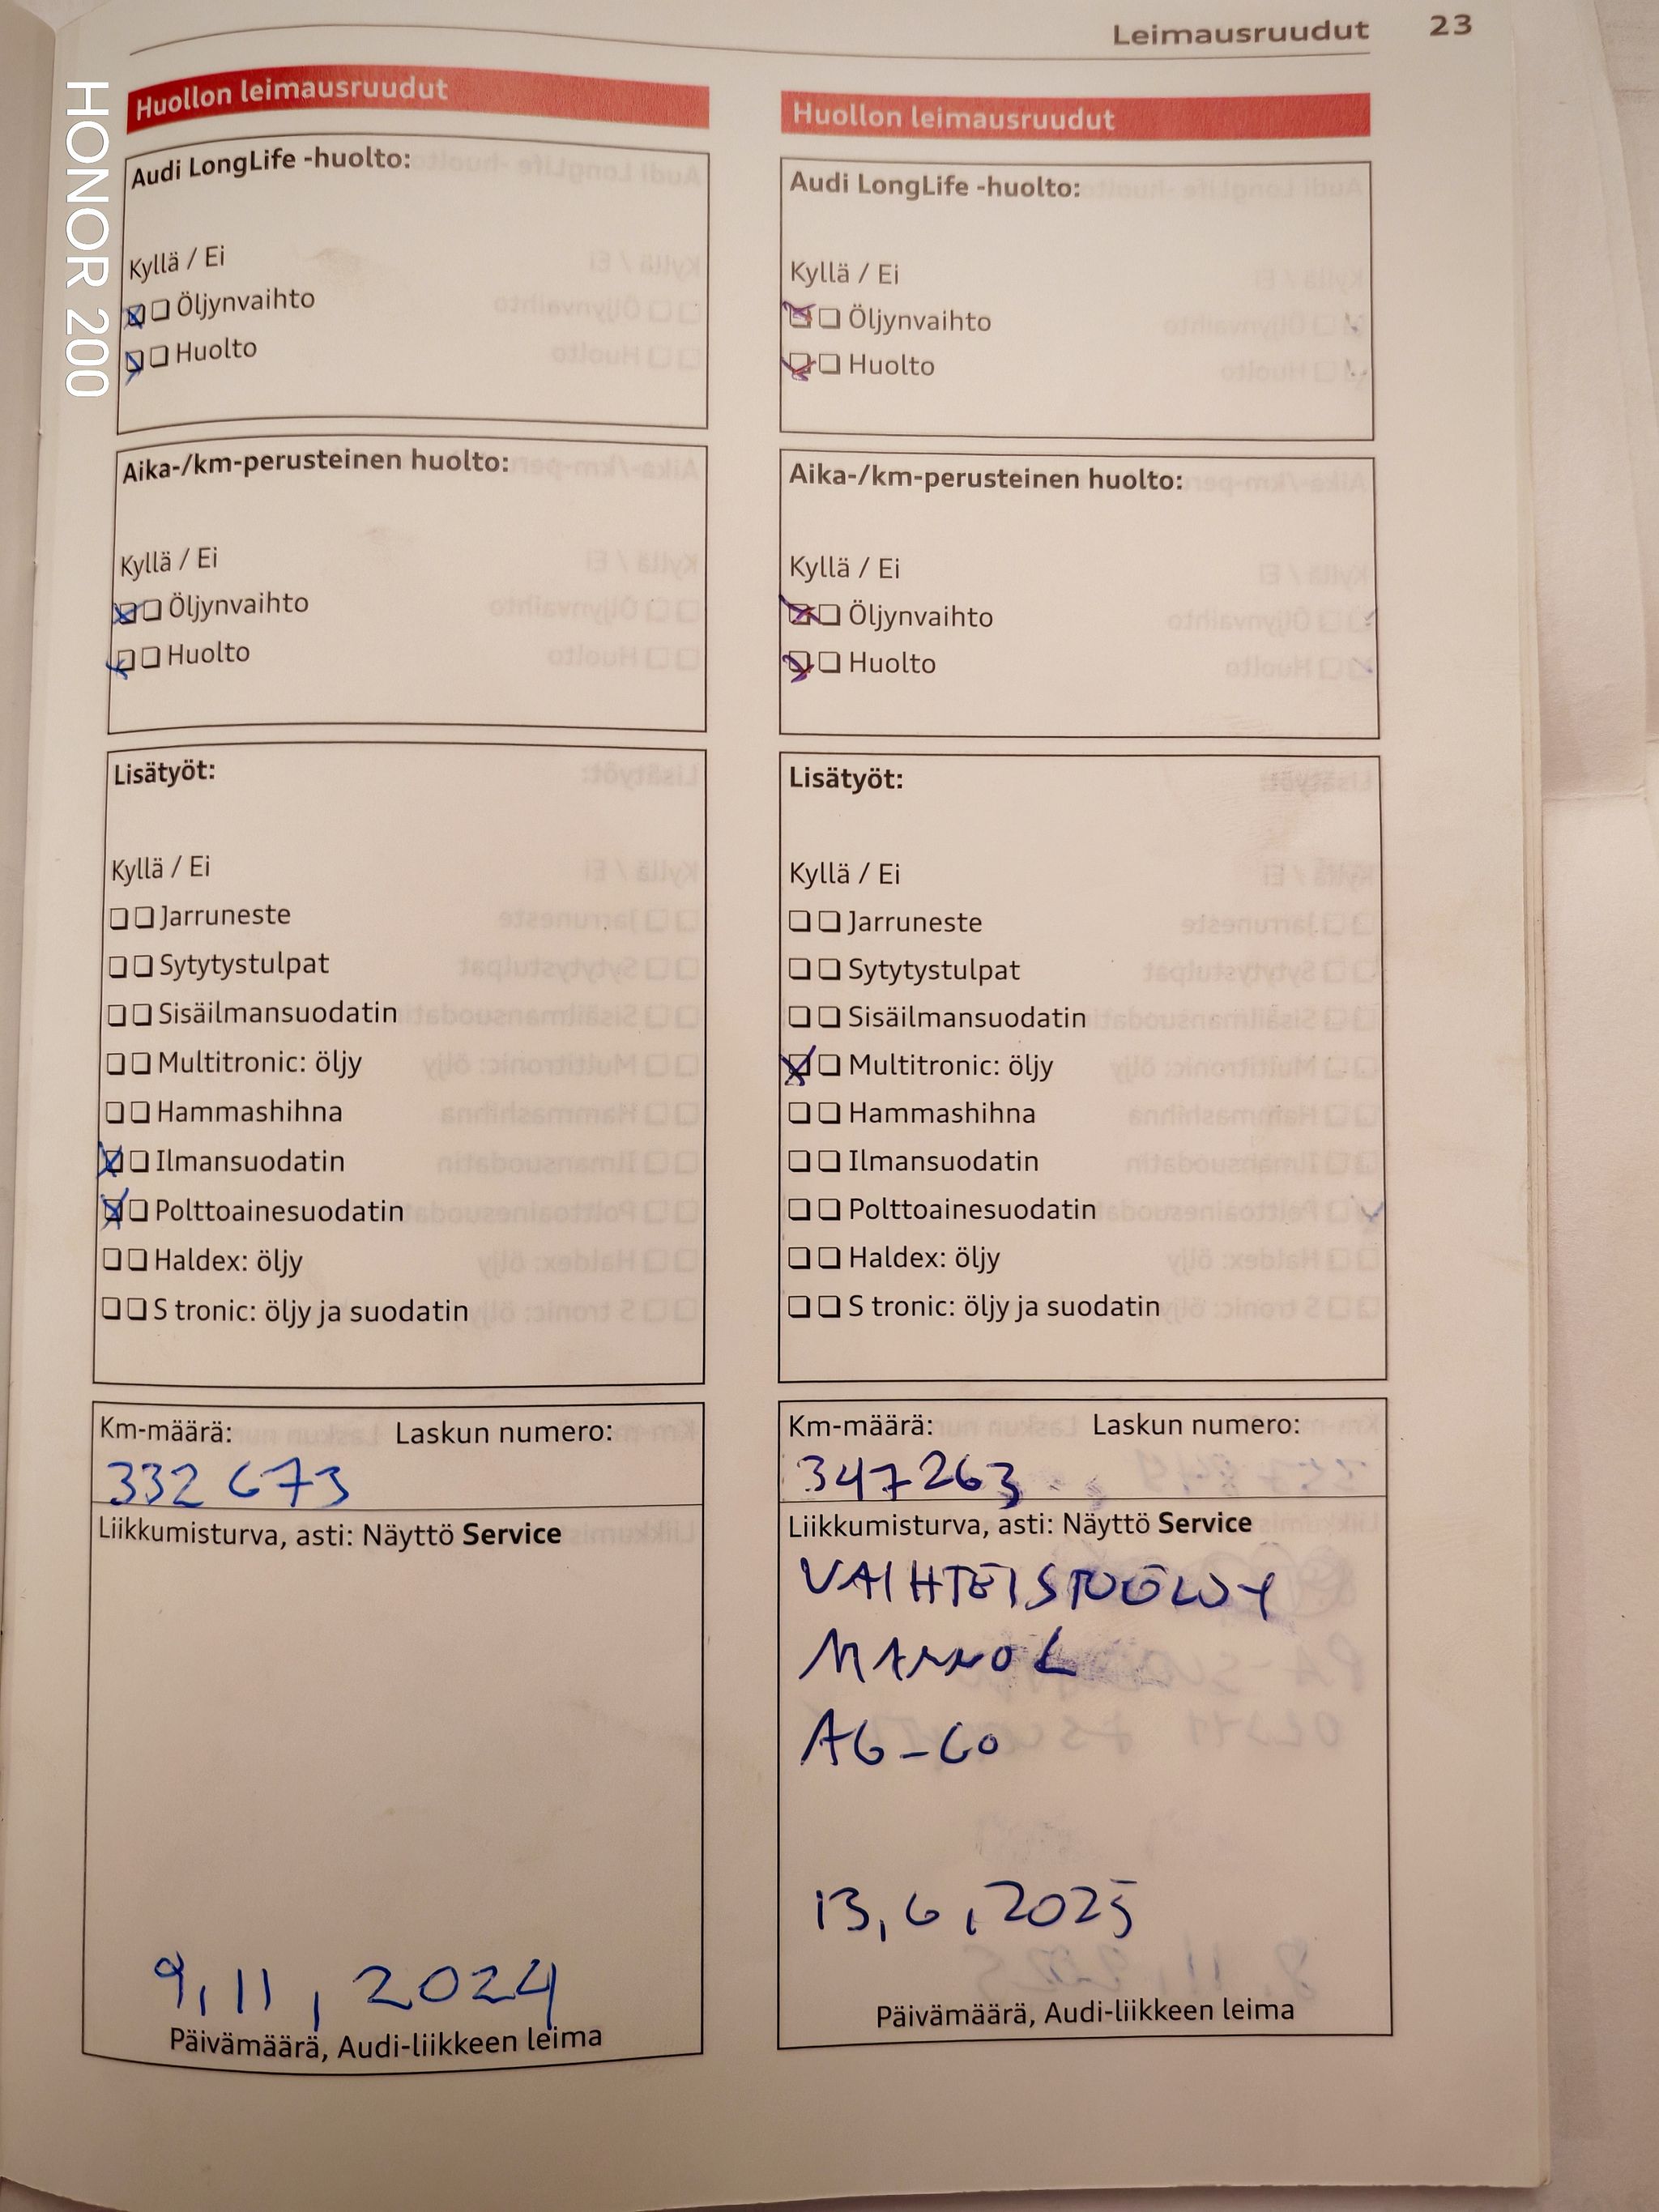 Leimausruudut 23
Huollon leimausruudut
Audi LongLife -huolto:
Kyllä / Ei
Öljynvaihto
Huolto
Aika-/km-perusteinen huolto:
Kyllä / Ei
Öljynvaihto
Huolto
Lisätyöt:
Kyllä / Ei
Jarruneste
Sytytystulpat
Sisäilmansuodatin
Multitronic: öljy
Hammashihna
Ilmansuodatin
Polttoainesuodatin
Haldex: öljy
S tronic: öljy ja suodatin
Km-määrä: Laskun numero:
332 673
Liikkumisturva, asti: Näyttö Service
9.11.2024
Päivämäärä, Audi-liikkeen leima
Huollon leimausruudut
Audi LongLife -huolto:
Kyllä / Ei
Öljynvaihto
Huolto
Aika-/km-perusteinen huolto:
Kyllä / Ei
Öljynvaihto
Huolto
Lisätyöt:
Kyllä / Ei
Jarruneste
Sytytystulpat
Sisäilmansuodatin
Multitronic: öljy
Hammashihna
Ilmansuodatin
Polttoainesuodatin
Haldex: öljy
S tronic: öljy ja suodatin
Km-määrä: Laskun numero:
347263
Liikkumisturva, asti: Näyttö Service
VAIHTEISTOÖLJY
MANNOL
AG-60
13.6.2025
Päivämäärä, Audi-liikkeen leima
HONOR 200